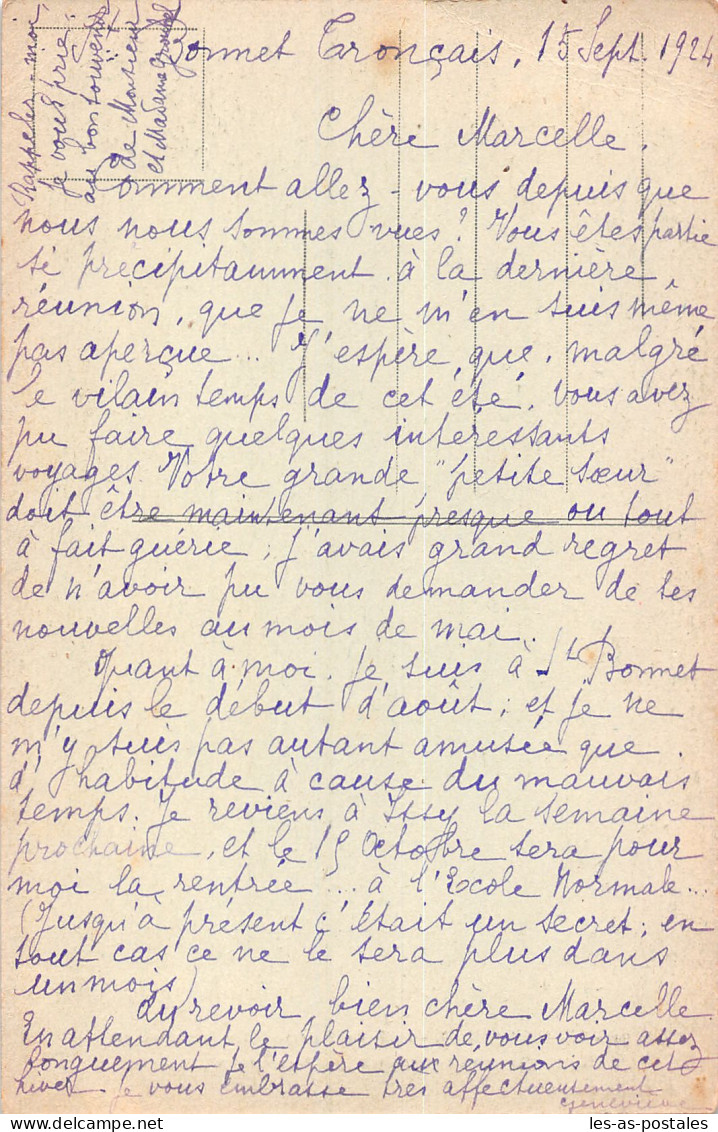 Bonnet Tronçais, 15 Sept. 1924
Chère Marcelle,
Comment allez-vous depuis que
nous nous sommes vues ? Vous êtes partie
si précipitamment à la dernière
réunion, que je ne m'en suis même
pas aperçue... J'espère que, malgré
le vilain temps de cet été, vous avez
pu faire quelques intéressants
voyages. Votre grande "petite sœur"
doit être maintenant presque ou tout
à fait guérie ; j'avais grand regret
de n'avoir pu vous demander de ses
nouvelles au mois de mai.
Quant à moi, je suis à St Bonnet
depuis le début d'août ; et je ne
m'y suis pas autant amusée que
d'habitude à cause du mauvais
temps. Je reviens à Issy la semaine
prochaine, et le 15 Octobre sera pour
moi la rentrée... à l'École Normale...
(Jusqu'à présent c'était un secret ; en
tout cas ce ne le sera plus dans
un mois)
Au revoir bien chère Marcelle
En attendant le plaisir de vous voir assez
longuement je l'espère aux réunions de cet
hiver je vous embrasse très affectueusement
Geneviève
Rappelez-moi,
je vous prie,
au bon souvenir
de Monsieur
et Madame
les-as-postales.com